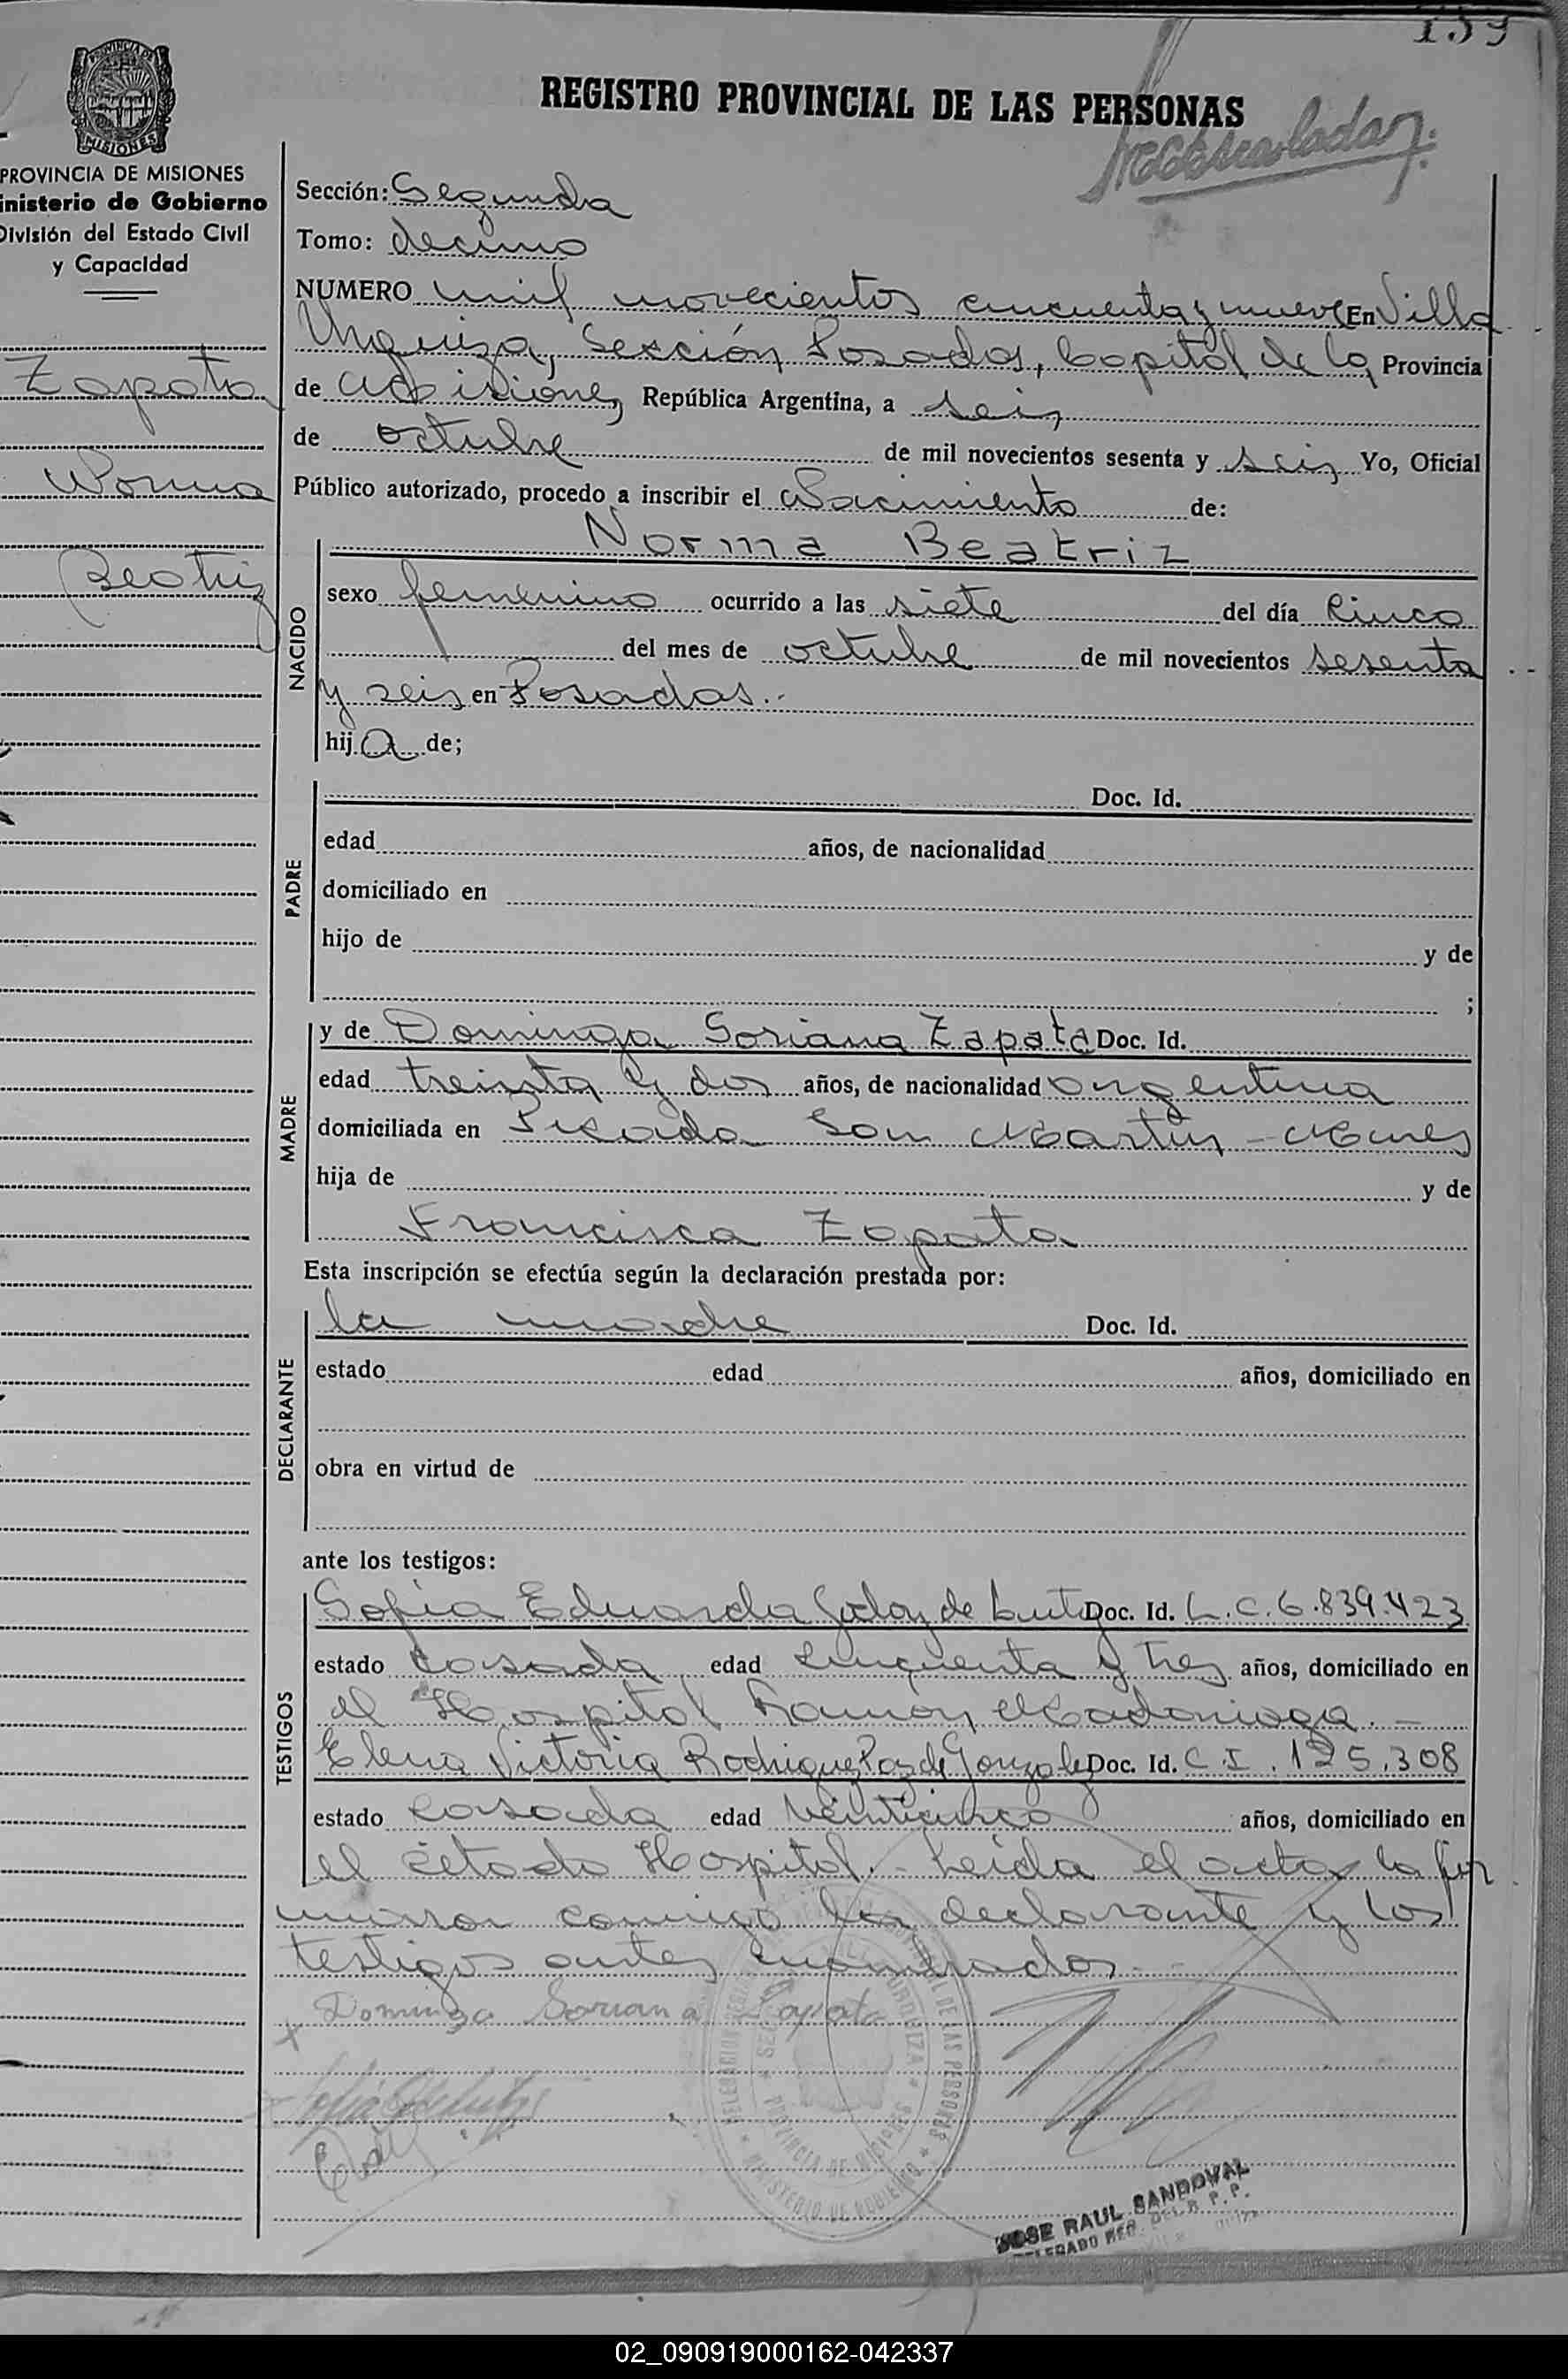 159
PROVINCIA DE
MISIONES
REGISTRO PROVINCIAL DE LAS PERSONAS
PROVINCIA DE MISIONES
inisterio de Gobierno
División del Estado Civil
y Capacidad
Zapata
Norma
Beatriz
Sección: Segunda
Tomo: decimo
NUMERO mil novecientos cincuenta y nueve En Villa
Urquiza, Sección Posadas, Capital de la Provincia
de Misiones, República Argentina, a seis
de octubre de mil novecientos sesenta y seis Yo, Oficial
Público autorizado, procedo a inscribir el Nacimiento de:
NACIDO
Norma Beatriz
sexo femenino ocurrido a las siete del día Cinco
del mes de octubre de mil novecientos sesenta
y seis en Posadas.-
hij a de;
PADRE
Doc. Id.
edad años, de nacionalidad
domiciliado en
hijo de y de
;
MADRE
y de Dominga Soriana Zapata Doc. Id.
edad treinta y dos años, de nacionalidad argentina
domiciliada en Picada San Martin - Mnes
hija de y de
Francisca Zapata
Esta inscripción se efectúa según la declaración prestada por:
DECLARANTE
la madre Doc. Id.
estado edad años, domiciliado en
obra en virtud de
ante los testigos:
TESTIGOS
Sofia Eduarda de Doc. Id. L.C.6.839.423
estado casada edad cincuenta y tres años, domiciliado en
el Hospital Ramón Madariaga.-
Elena Victoria Rodriguez Paz de Gonzalez Doc. Id. C.I. 125.308
estado casada edad veinticinco años, domiciliado en
el citado Hospital.- Leida el acta la fir
man conmigo la declarante y los
testigos antes nombrados.-
x Dominga Soriana Zapata
MINISTERIO DE GOBIERNO
PROVINCIA DE MISIONES
JOSE RAUL SANDOVAL
DELEGADO REG. DEL R. P. P.
02_090919000162-042337